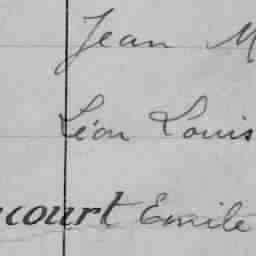 Jean M
Léon Louis
court Emile